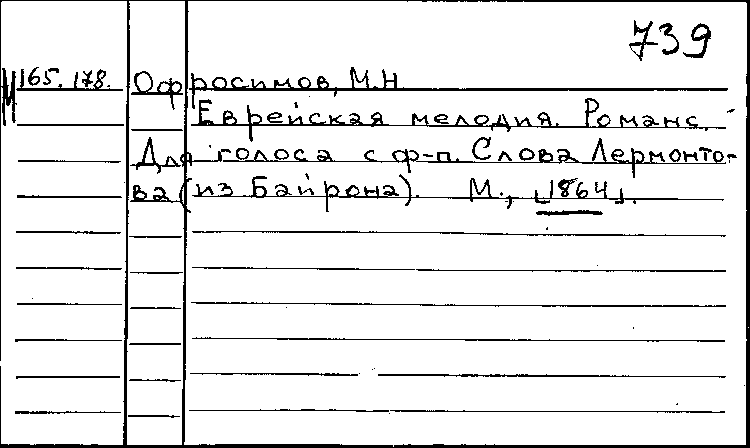 739
М 165.178. Офросимов, М.Н.
Еврейская мелодия. Романс. -
Для голоса с ф-п. Слова Лермонто-
ва (из Байрона). М., [1864].